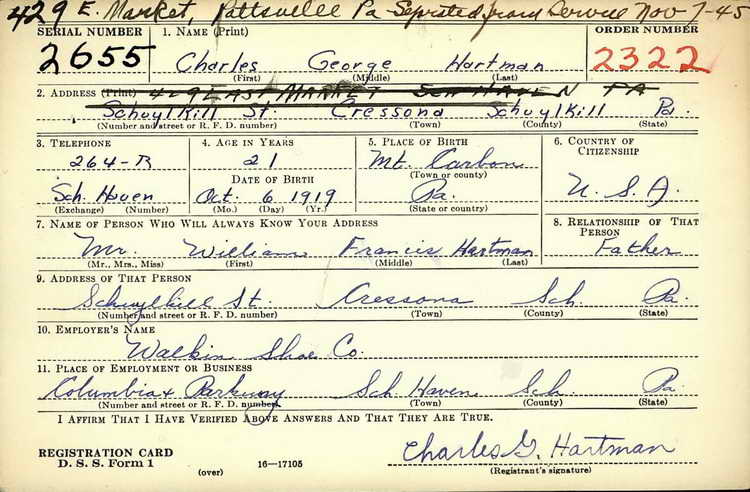 429 E. Market, Pottsville Pa Seprated from Service Nov 7-45
SERIAL NUMBER 1. NAME (Print) ORDER NUMBER
2655 Charles George Hartman 2322
(First) (Middle) (Last)
2. ADDRESS (Print) 429 EAST MARKET SCH HAVEN PA
Schuylkill St. Cressona Schuylkill Pa.
(Number and street or R. F. D. number) (Town) (County) (State)
3. TELEPHONE 4. AGE IN YEARS 5. PLACE OF BIRTH 6. COUNTRY OF CITIZENSHIP
264-R 21 Mt. Carbon
(Town or county)
DATE OF BIRTH
Sch. Haven Oct. 6 1919 Pa. U. S. A.
(Exchange) (Number) (Mo.) (Day) (Yr.) (State or country)
7. NAME OF PERSON WHO WILL ALWAYS KNOW YOUR ADDRESS 8. RELATIONSHIP OF THAT PERSON
Mr. William Francis Hartman Father
(Mr., Mrs., Miss) (First) (Middle) (Last)
9. ADDRESS OF THAT PERSON
Schuylkill St. Cressona Sch. Pa.
(Number and street or R. F. D. number) (Town) (County) (State)
10. EMPLOYER'S NAME
Walkin Shoe Co.
11. PLACE OF EMPLOYMENT OR BUSINESS
Columbia & Parkway Sch Haven Sch. Pa.
(Number and street or R. F. D. number) (Town) (County) (State)
I AFFIRM THAT I HAVE VERIFIED ABOVE ANSWERS AND THAT THEY ARE TRUE.
Charles G. Hartman
REGISTRATION CARD
D. S. S. Form 1 (over) 16—17105 (Registrant's signature)